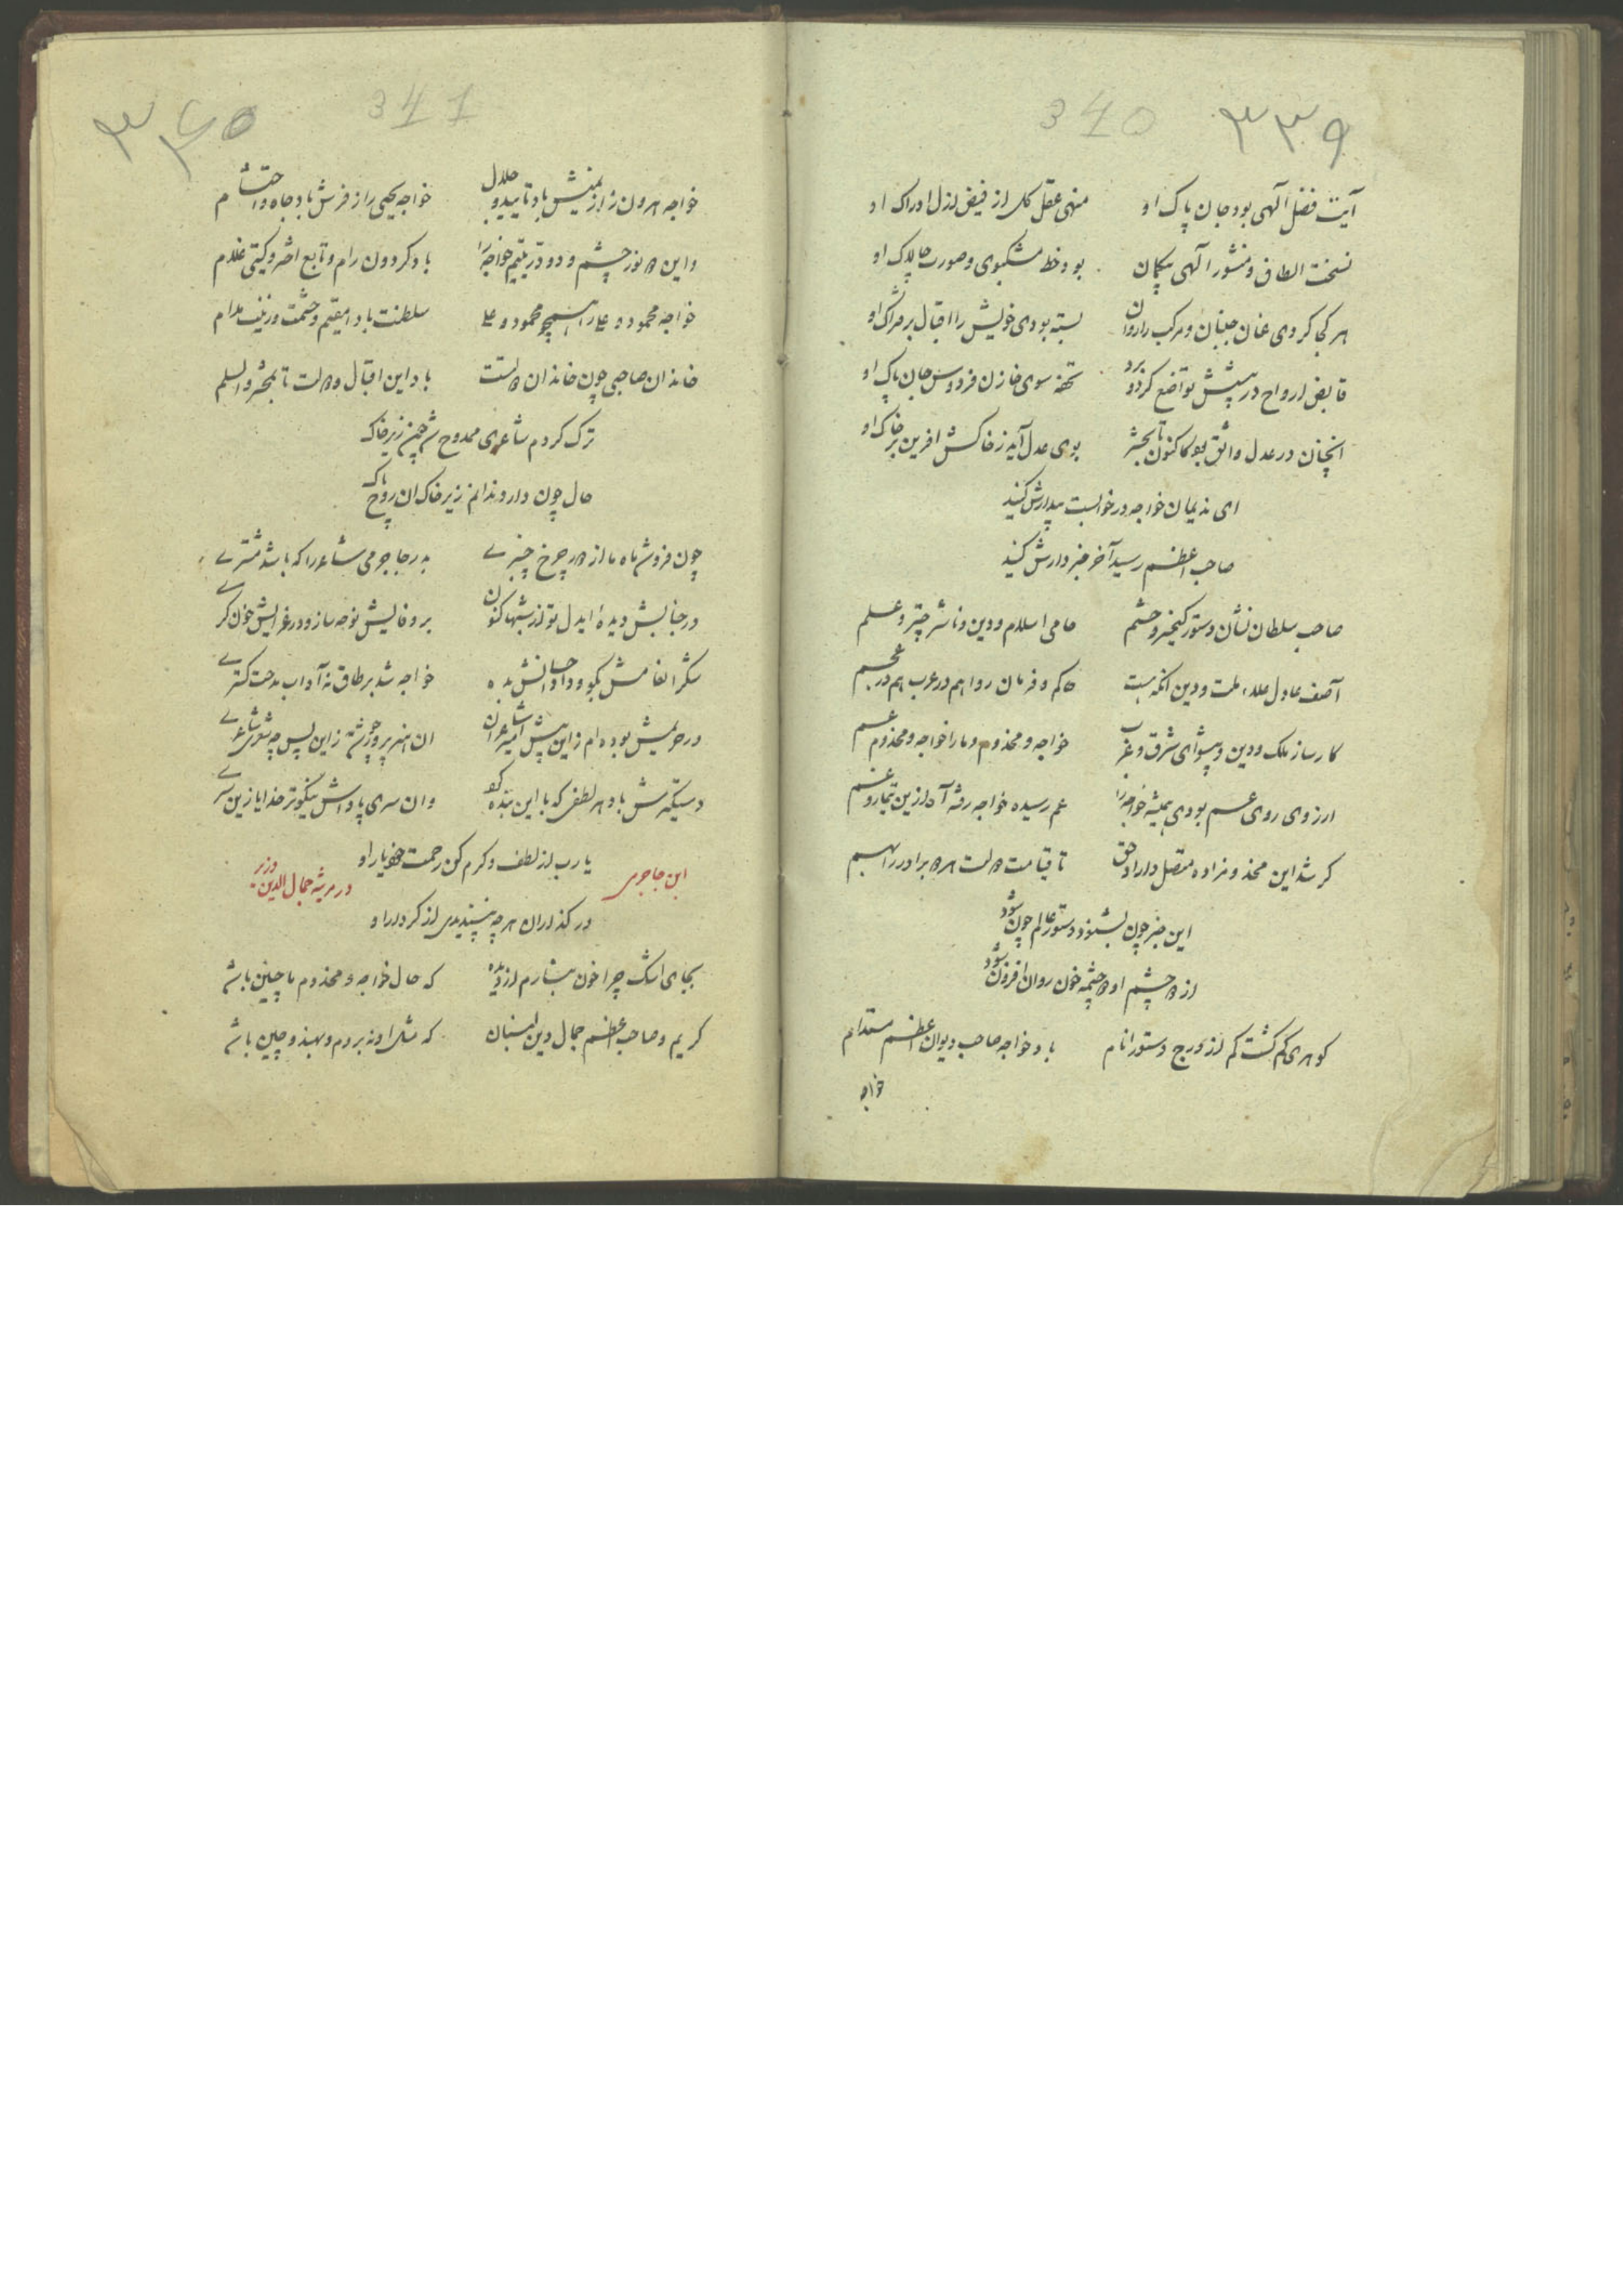 340 ۳۳۹
آیت فضل آلهی بود جان پاک او منهی عقل کل از فیض ازل ادراک او
نسخت الطاف و منشور آلهی بیکمان بود خط مشکبوی و صورت چالاک او
هر کجا کردی عنان جنبان و مرکب را روان بسته بودی خویش را اقبال بر فتراک او
قابض ارواح در پیشش تواضع کرد و برد تحفه سوی خازن فردوس جان پاک او
انچنان در عدل واثق بود کاکنون تا بحشر بوی عدل آید ز خاکش افرین بر خاک او
ای ندیمان خواجه در خوابست بیدارش کنید
صاحب اعظم رسید آخر خبر دارش کنید
صاحب سلطان نشان دستور کیخسرو حشم حامی اسلام و دین و ناشر چتر و علم
آصف عادل علاء ملت و دین انکه هست حاکم و فرمان روا هم در عرب هم در عجم
کارساز ملک و دین و پیشوای شرق و غرب خواجه و مخدوم و ما را خواجه و مخدوم عم
ارزوی روی عم بودی همیشه خواجه را عم رسیده خواجه رفته آه ازین تیمار و غم
کر شد این مخدومزاده متصل دارد حق تا قیامت دولت هر دو برادر را بهم
این خبر چون بشنود دستور عالم چون شود
از دو چشم او دو چشمه خون روان افزون شود
کوهری کم کشت کم از درج دستور انام باد خواجه صاحب دیوان اعظم مستدام
خواجه
341 ۳۴۰
خواجه هرون را زیمنش باد تایید و جلال خواجه یحیی را ز فرش باد جاه و احتشام
و این دو نور چشم و دو در یتیم خواجه را باد کردون رام و تابع اختر و کیتی غلام
خواجه محمود و علی را همچو محمود و علی سلطنت بادا مقیم و حشمت و زینت مدام
خاندان صاحبی چون خاندان دولتست باد این اقبال و دولت تا بمحشر والسلم
ترک کردم شاعری ممدوح شد چون زیر خاک
حال چون دارد ندانم زیر خاک ان روح پاک
چون فرو شد ماه ما از دور چرخ چنبری بدر جاجرمی شاعر را که باشد مشتری
در جنابش دیدهٔ ایدل تو ازینها کنون بر وفایش نوحه ساز و در عزایش خون کری
شکر انعامش بکو و داد احسانش بده خواجه شد بر طاق نه آداب مدحت کستری
در حریمش بوده ام زاین پیش امیر شاعران ان هنر پرور چو شد زاین پس چه شعر و شاعری
دستکیرش باد هر لطفی که با این بنده کرد وان سری پاداش نیکوتر خدایا زین سری
یا رب از لطف و کرم کن رحمت خود یار او
در کذار ان هر چه نپسندیدی از کردار او
ابن جاجرمی در مرثیه جمال الدین وزیر
بجای اشک چرا خون نبارم از دیده که حال خواجه و مخدوم ما چنین باشد
کریم و صاحب اعظم جمال دین که مثل او نه بروم و بهند و چین باشد